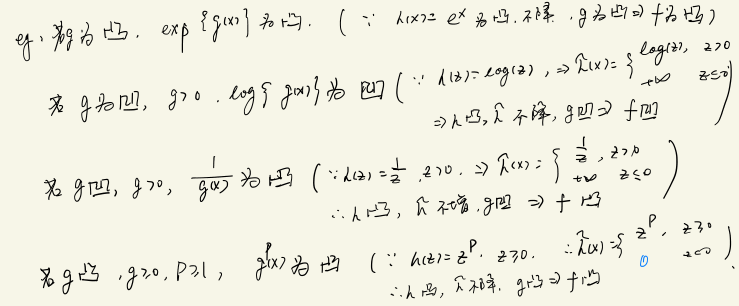 eg. 若g为凸. exp {g(x)} 为凸. ( ∵ h(x)= e^x 为凸. 不降. g为凸 ⇒ f为凸)
若 g为凹, g>0. log{ g(x)} 为 凹 ( ∵ h(z)=log(z), ⇒ h̃(x)= { log(z), z>0
+∞ z≤0 )
⇒ h 凸, h̃ 不降, g凹 ⇒ f凹
若 g凹, g>0, 1/g(x) 为凸 ( ∵ h(z)= 1/z, z>0. ⇒ h̃(x)= { 1/z, z>0
+∞ z≤0 )
∴ h凸, h̃ 不增, g凹 ⇒ f 凸
若 g凸, g≥0, P≥1, g^P(x) 为 凸 ( ∵ h(z)= z^P. z≥0. ∴ h̃(x)= { z^P, z≥0
0 z<0 )
∴ h 凸, h̃ 不降. g凸 ⇒ f凸